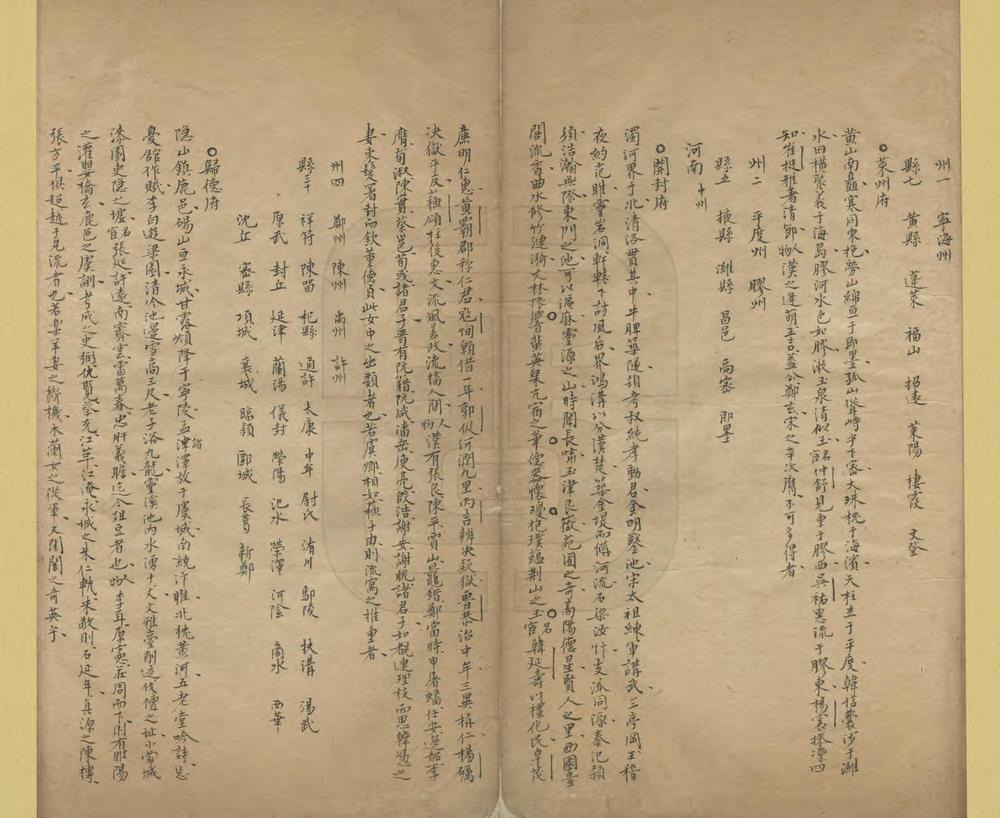 州一　寧海州
縣七　黃縣　蓬萊　福山　招遠　萊陽　棲霞　文登
○萊州府
黃山南矗寒同東挹夢山綿亘于即墨孤山聳峙乎千密大珠枕于海濱天柱立于平度韓信囊沙于濰
水田橫聚義于海島膠河水色如膠漱玉泉清似玉名官付舒見重于膠西吳祐惠流于膠東楊震操凜四
知崔挺雅著清節人物漢之逢萌王吉蓋公鄭玄宋之辛次膺不可多得者
州二　平度州　膠州
縣五　掖縣　濰縣　昌邑　高密　即墨
河南　十州
○開封府
濁河界于北清洛貫其中牛脾築隧穎考叔純孝動君金明鑿池宋太祖練軍講武三亭岡王稽
夜約范睢靈岩洞軒轅下訪風后界鴻溝以分漢楚築金堤而備河流石梁汝忭支流同源秦汜潁
須浩瀚無際東門之池可以漚麻靈源之山時聞長嘯玉津艮嶽苑囿之奇高陽德星賢人之里西園臺
閣流香曲水修竹漣漪文林攄響蜚英集亢宿之華德器懷瓊抱璞蘊荊山之玉名官韓延壽以禮化民卓茂
廉明仁惠黃霸郡稱仁君寇恂朝借一年郭伋河潤九里丙吉辨決疑獄魯恭治中牟三異稱仁楊礪
決獄于反掖頌柱後惠文流風善政流檔人間人物漢有張良陳平賈山鼂錯鄭當時申屠蟠仔安邊韶李
膺荀淑陳寔蔡邕荀彧諸君子晉有阮籍阮咸潘岳庾亮殷浩謝安謝眺諸君子如覩連理枝而思韓憑之
妻束髮署封而欽董德貞此女中之出類者也若虞卿相如蘇子由則流寓之推重者
州四　鄭州　陳州　禹州　許州
縣三十　祥符　陳留　杞縣　通許　太康　中牟　尉氏　洧川　鄢陵　扶溝　湯武
原武　封丘　延津　蘭湯　儀封　滎陽　汜水　滎澤　河陰　商水　西華
沈丘　密縣　項城　襄城　臨潁　郾城　長葛　新鄭
○歸德府
隱山鎮鹿邑碭山亘永城甘露頻降于寧陵孟津澤放于虞城南繞汴睢北枕黃河五老堂吟詩忘
憂館作賦李白遊梁園清泠池邊雪高三尺老子浴九龍靈溪池內水湧十丈文雅臺削迹伐檀之址小蒙城
漆園吏隱之墟名官張巡許遠南霽雲雷萬春忠肝義膽迄今俎豆者也人物李耳原憲莊周而下則有睢陽
之灌嬰橋玄鹿邑之虞詡考成之史弼仇覽蔡充江革江淹永城之朱仁軌朱敬則石延年真源之陳摶
張方平俱超越于凡流者也若樂羊妻之斷機木蘭女之從軍又閨閣之奇英乎